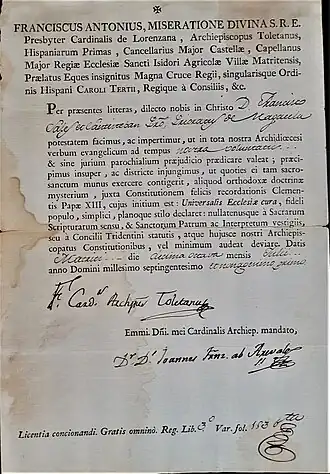 ✠
FRANCISCUS ANTONIUS, MISERATIONE DIVINA S. R. E.
Presbyter Cardinalis de Lorenzana, Archiepiscopus Toletanus,
Hispaniarum Primas, Cancellarius Major Castellæ, Capellanus
Major Regiæ Ecclesiæ Sancti Isidori Agricolæ Villæ Matritensis,
Prælatus Eques insignitus Magna Cruce Regii, singularisque Ordinis
Hispani CAROLI TERTII, Regique à Consiliis, &c.
Per præsentes litteras, dilecto nobis in Christo D. Francisco
de
potestatem facimus, ac impertimur, ut in tota nostra Archidiœcesi
verbum evangelicum ad tempus
& sine jurium parochialium præjudicio prædicare valeat; præcipimus
insuper, ac districte injungimus, ut quoties ei tam sacrosanctum
munus exercere contigerit, aliquod orthodoxæ doctrinæ
mysterium, juxta Constitutionem felicis recordationis Clementis
Papæ XIII, cujus initium est: Universalis Ecclesiæ cura, fideli
populo, simplici, planoque stilo declaret: nullatenusque à Sacrarum
Scripturarum sensu, & Sanctorum Patrum ac Interpretum vestigiis,
seu à Concilii Tridentini statutis, atque hujusce nostri Archiepiscopatus
Constitutionibus, vel minimum audeat deviare. Datis
die decima octava mensis
anno Domini millesimo septingentesimo nonagesimo primo
F. Card.s Archpus Toletanus
Emmi. Dñi. mei Cardinalis Archiep. mandato,
Dr. Dn. Joannes Franz. ab Arevalo
Licentia concionandi. Gratis omninò. Reg. Lib. 3.º Var. fol. 153